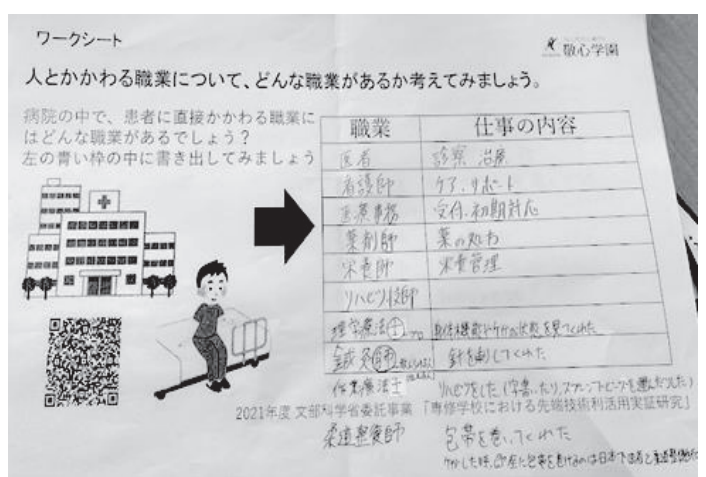 ワークシート
敬心学園
人とかかわる職業について、どんな職業があるか考えてみましょう。
病院の中で、患者に直接かかわる職業に
はどんな職業があるでしょう？
左の青い枠の中に書き出してみましょう
職業 仕事の内容
医者 診察 治療
看護師 ケア、サポート
医療事務 受付、初期対応
薬剤師 薬の処方
栄養師 栄養管理
リハビリ技師
理学療法士 プロ 身体機能やケガの状態を見てくれた
鍼灸師 針を刺してくれた
作業療法士 リハビリをした(字書いたり、スプーン
2021年度 文部科学省委託事業 「専修学校における先端技術利活用実証研究」
柔道整復師 包帯を巻いてくれた
ケガした時、